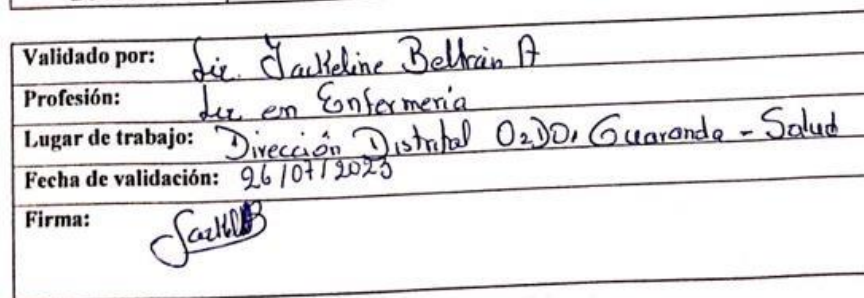 Validado por: Lic. Jackeline Beltrán A
Profesión: Lic en Enfermería
Lugar de trabajo: Dirección Distrital 02D01 Guaranda - Salud
Fecha de validación: 26/07/2023
Firma: